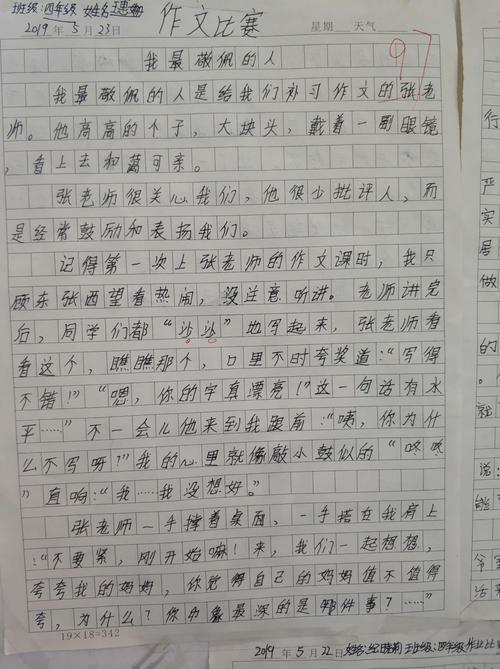 班级:四年级 姓名:王思
2019 年 5 月 23 日 作文比赛 星期 天气
97
我最敬佩的人
我最敬佩的人是给我们补习作文的张老
师。他高高的个子，大块头，戴着一副眼镜
，看上去和蔼可亲。
张老师很关心我们，他很少批评人，而
是经常鼓励和表扬我们。
记得第一次上张老师的作文课时，我只
顾东张西望看热闹，没注意听讲。老师讲完
后，同学们都“沙沙”地写起来，张老师看
看这个，瞧瞧那个，口里不时夸奖道：“写得
不错！”“嗯，你的字真漂亮！”“这一句话有水
平……”不一会儿他来到我跟前：“咦，你为什
么不写呀？”我的心里就像敲小鼓似的“咚咚
”直响：“我……我没想好。”
张老师一手撑着桌面，一手搭在我肩上
：“不要紧，刚开始嘛！来，我们一起想想，
夸夸我的妈妈，你觉得自己的妈妈值不值得
夸，为什么？你印象最深的是哪件事？……”
19×18=342
2019 年 5 月 22 日 姓名: 班级:四年级 作业比
行
严
实
居
做
说
能
爷
活